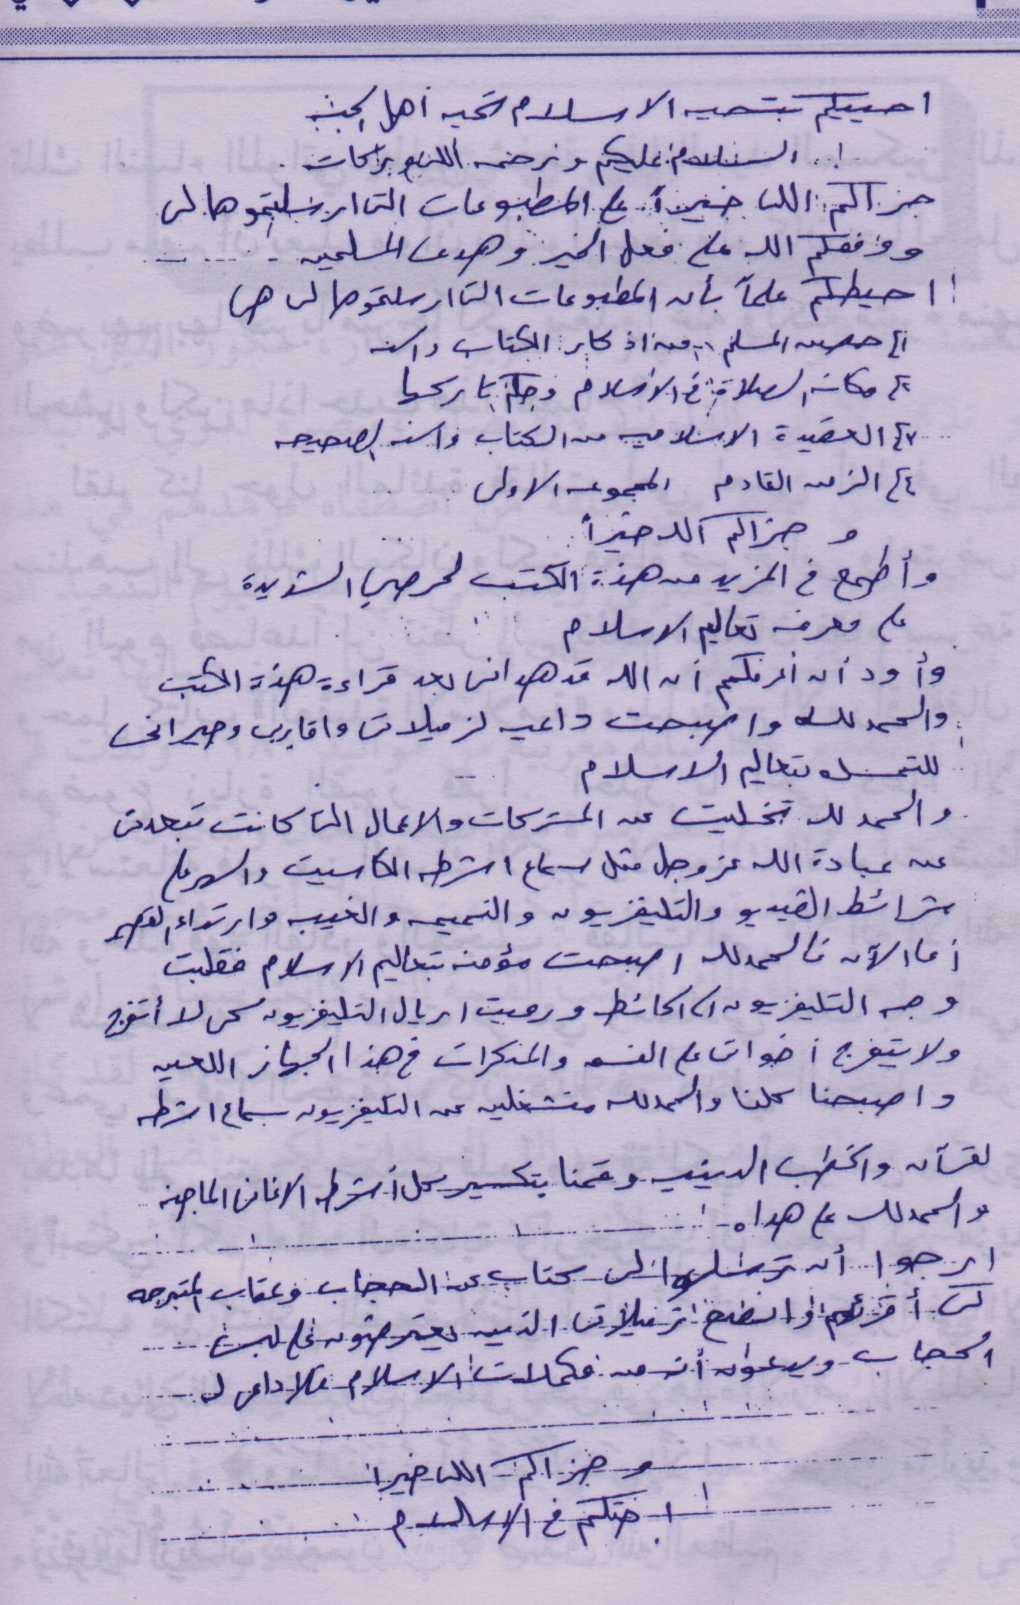 احييكم بتحيه الاسلام تحيه أهل الجنه
السلام عليكم ورحمه الله وبركات
جزاكم الله خيراً على المطبوعات التى ارسلتموها لى
ووفقكم الله على فعل الخير وهدى المسلمين
احيطكم علماً بأن المطبوعات التى ارسلتموها لى هى
١) حصن المسلم من اذكار الكتاب والسنه
٢) مكانه الصلاة فى الاسلام وحكم تاركها
٣) العقيدة الاسلاميه من الكتاب والسنه الصحيحه
٤) الزمن القادم المجموعه الاولى
و جزاكم الله خيراً
وأطمع فى المزيد من هذة الكتب لحرصى الشديدة
على معرفه تعاليم الاسلام
وأود أن أعرفكم أن الله قد هدانى بعد قراءة هذة الكتب
والحمد لله واصبحت داعيه لزميلاتى واقاربى وجيرانى
للتمسك بتعاليم الاسلام
والحمد لله تخليت عن المنكرات والاعمال التى كانت تبعدنى
عن عبادة الله عز وجل مثل سماع اشرطه الكاسيت والسهر على
شرائط الفيديو والتليفزيون والنميمه والغيبه وارتداء القصير
أما الآن فالحمد لله اصبحت مؤمنه بتعاليم الاسلام فقلبت
وجه التليفزيون الى الحائط ورميت اريال التليفزيون كى لا أتفرج
ولا يتفرج أخواتى على الفسق والمنكرات فى هذا الجهاز اللعين
واصبحنا كلنا والحمد لله منشغلين عن التليفزيون بسماع اشرطه
لقرآن والخطب الدينيه وقمنا بتكسير كل أشرطه الاغانى الماجنه
والحمد لله على هداه
ارجوا أن ترسلوا لى كتاب عن الحجاب وعقاب المتبرجه
كى أقرئه وانصح زميلاتى الذين يعترضون على لبس
الحجاب ويدعون أنه من مكملات الاسلام فلا داعى له
و جزاكم الله خيرا
اختكم فى الاسلام